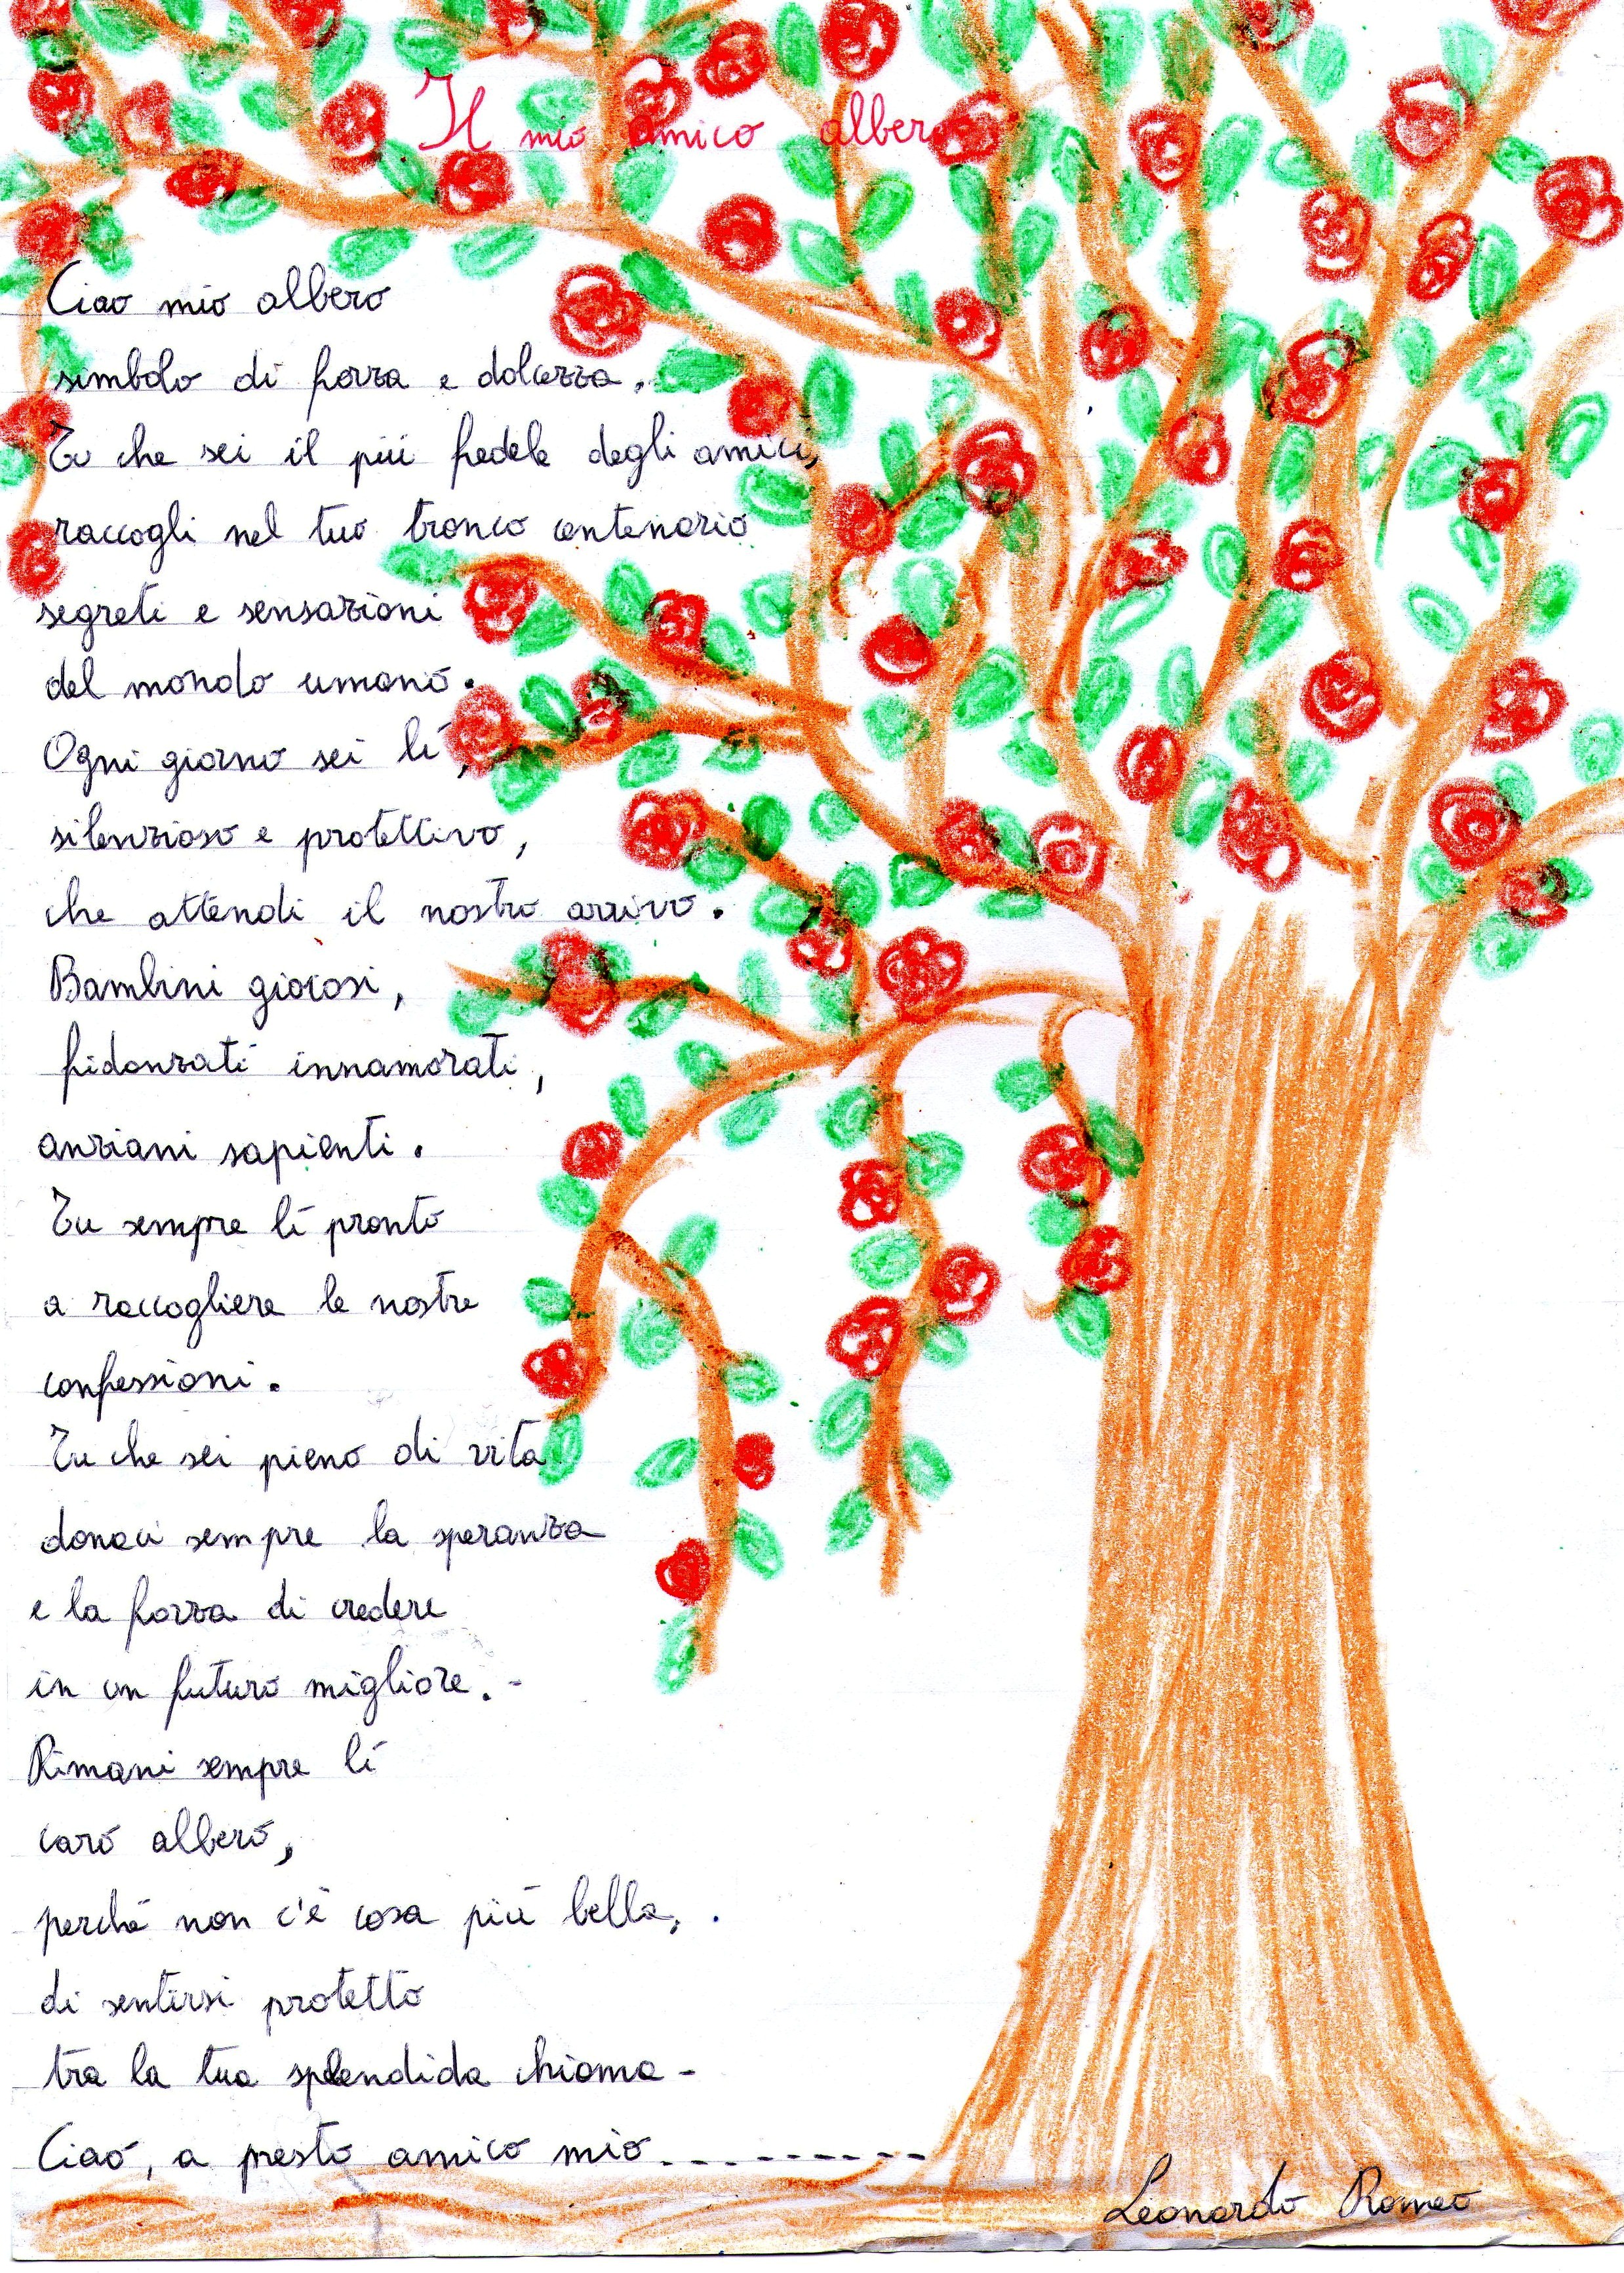 Il mio amico albero
Ciao mio albero
simbolo di forza e dolcezza.
Tu che sei il più fedele degli amici,
raccogli nel tuo tronco centenario
segreti e sensazioni
del mondo umano.
Ogni giorno sei lì,
silenzioso e protettivo,
che attendi il nostro arrivo.
Bambini giocosi,
fidanzati innamorati,
anziani sapienti.
Tu sempre lì pronto
a raccogliere le nostre
confessioni.
Tu che sei pieno di vita
donaci sempre la speranza
e la forza di credere
in un futuro migliore.-
Rimani sempre lì
caro albero,
perché non c'è cosa più bella,.
di sentirsi protetto
tra la tua splendida chioma-
Ciao, a presto amico mio.---------
Leonardo Romeo